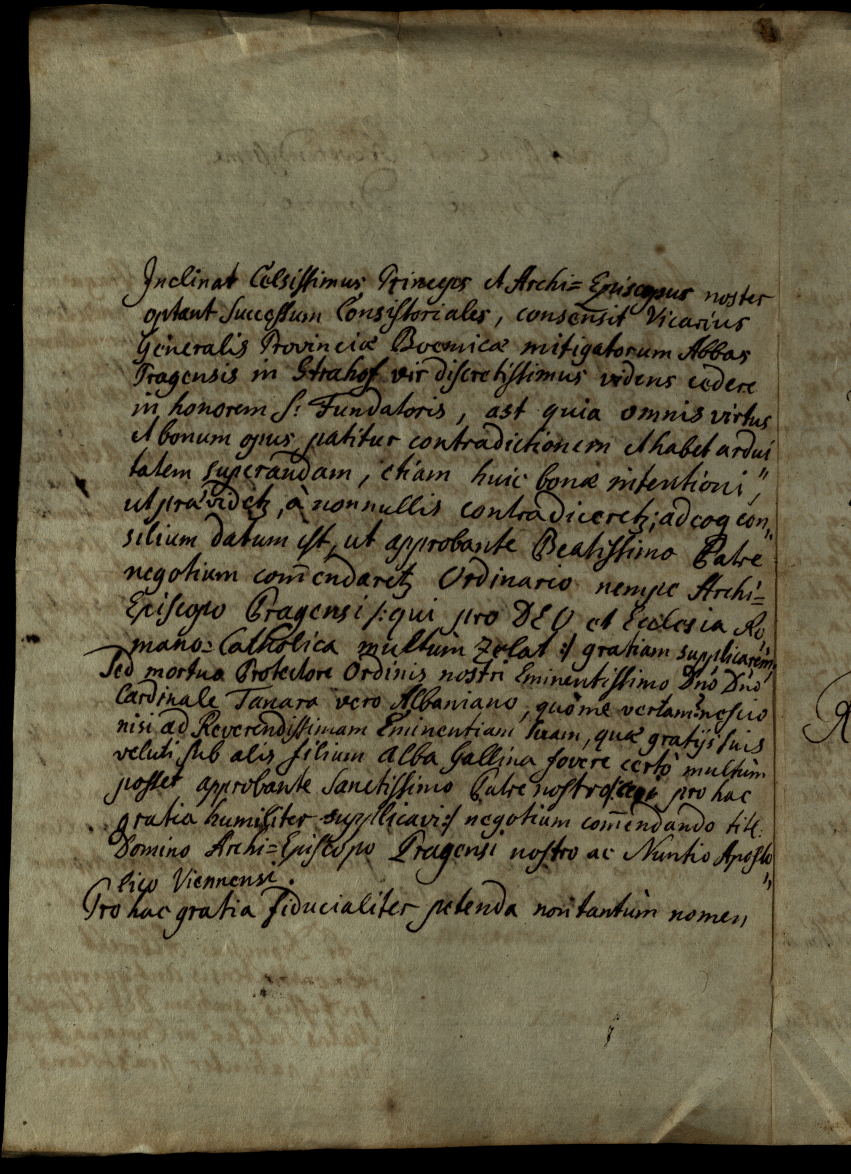 Inclinat Celsissimus Princeps et Archi= Episcopus noster
optant Successum Consistoriales, consensit Vicarius
Generalis Provinciæ Boemicæ mitigatorum Abbas
Pragensis in Strahof vir discretissimus videns cedere
in honorem S: Fundatoris, ast quia omnis virtus
et bonum opus patitur contradictionem et habet ardui
tatem superandam, etiam huic bonæ intentioni,
ut prævidetz, à nonnullis contradiceretz; adeoq con„
silium datum est, ut approbante Beatissimo Patre
negotium com̄endaretz Ordinario nempe Archi=
Episcopo Pragensi /: qui pro DEO et Ecclesia Ro„
mano=Catholica multum zelat :/ gratiam supplicarem,
Sed mortuo Protectore Ordinis nostri Eminentissimo Dn̄o Dn̄o
Cardinale Tanara vero Albaniano, quo me vertam? nescio
nisi ad Reverendissimam Eminentiam tuam, quæ gratijs suis
veluti sub alis filium alba Gallina fovere certò multùm
posset approbante Sanctissimo Patre nostro pro hac
gratia humiliter supplicavi :/ negotium com̄endando titl:
Domino Archi=Episcopo Pragensi nostro ac Nuntio Aposto„
lico Viennensi.
Pro hac gratia fiducialiter petenda non tantùm nomen